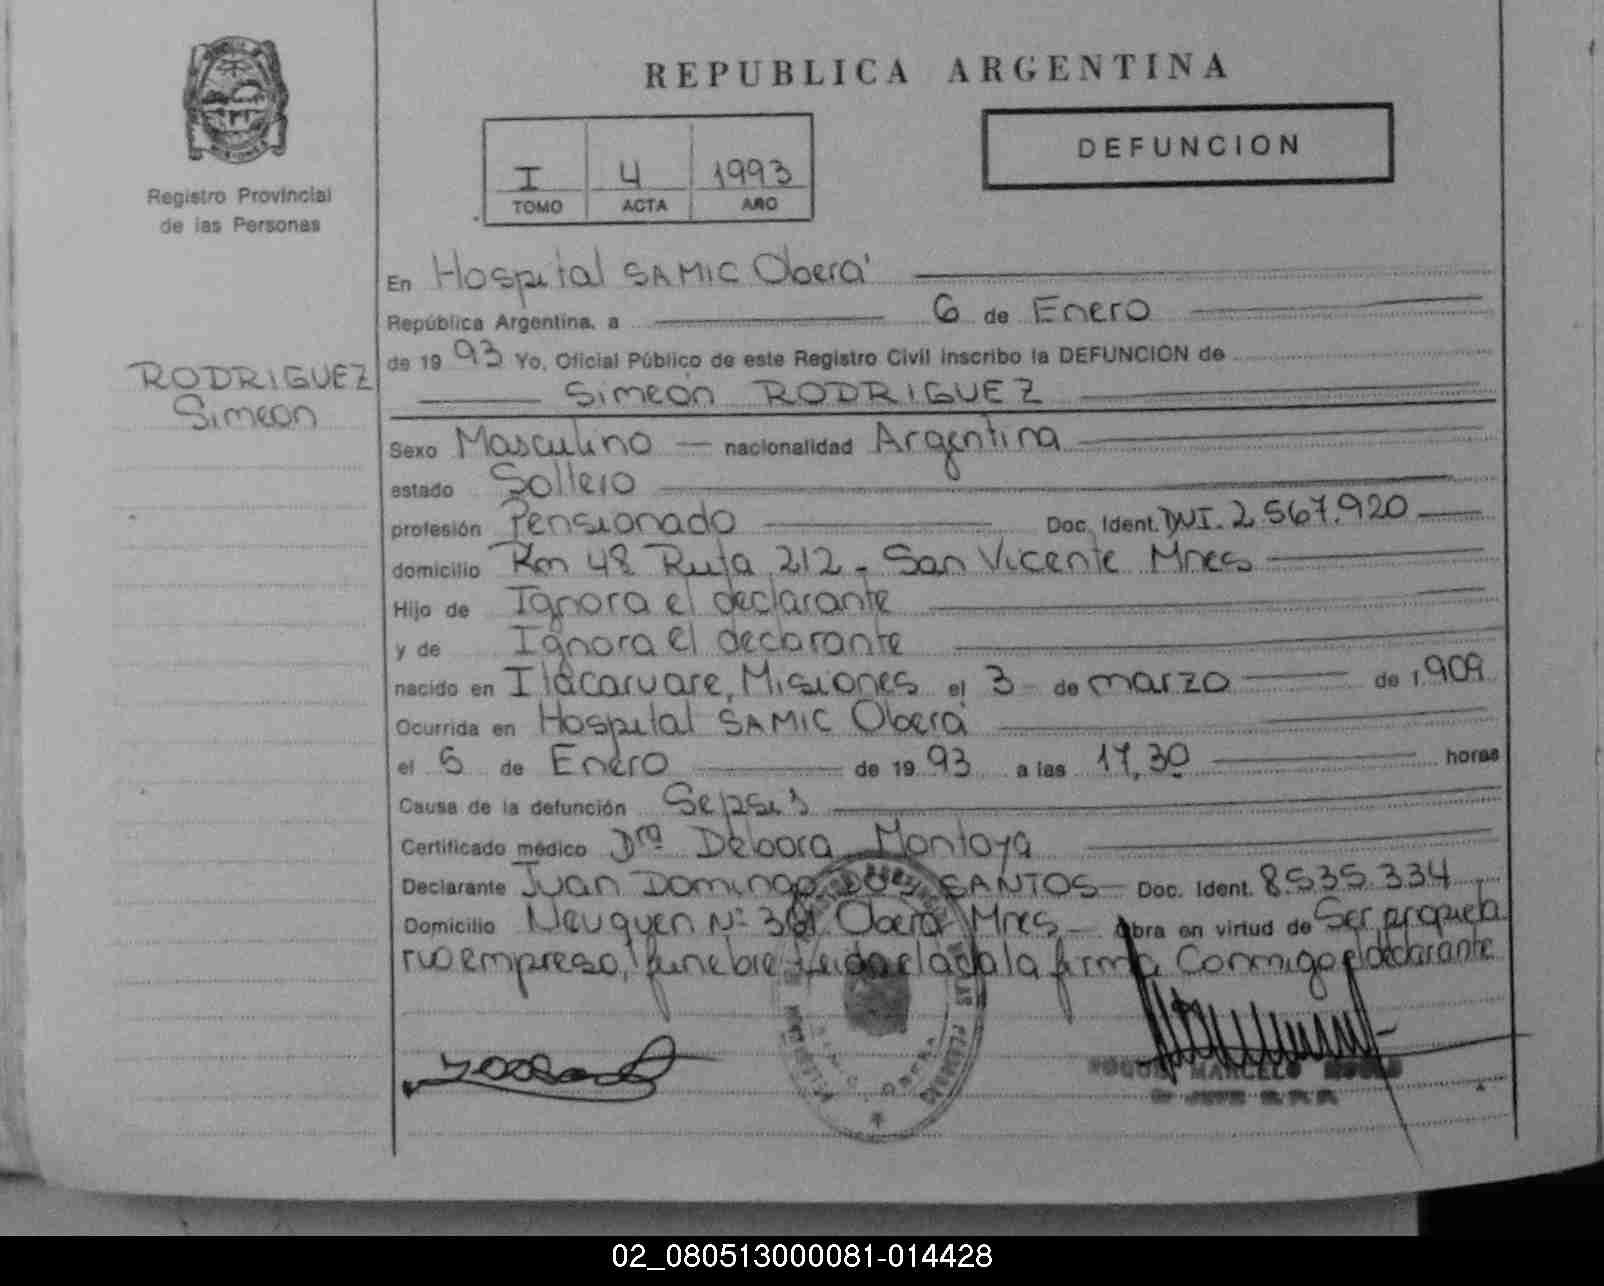 REPUBLICA ARGENTINA
DEFUNCION
I 4 1993
TOMO ACTA AÑO
Registro Provincial
de las Personas
En Hospital SAMIC Oberá
República Argentina, a 6 de Enero
de 1993 Yo, Oficial Público de este Registro Civil inscribo la DEFUNCION de
RODRIGUEZ
Simeon
Simeón RODRIGUEZ
Sexo Masculino nacionalidad Argentina
estado Soltero
profesión Pensionado Doc. Ident. DNI. 2.567.920
domicilio Km 48 Ruta 212 - San Vicente Mnes
Hijo de Ignora el declarante
y de Ignora el declarante
nacido en Itacaruare, Misiones el 3 de marzo de 1.909
Ocurrida en Hospital SAMIC Oberá
el 5 de Enero de 1993 a las 17,30 horas
Causa de la defunción Sepsis
Certificado médico Dra Débora Montoya
Declarante Juan Domingo DOS SANTOS Doc. Ident. 8.535.334
Domicilio Neuquen Nº Oberá Mnes Obra en virtud de Ser propieta
rio empresa funebre leida el acta la firma Conmigo el declarante
ROQUE MARCELO
02_080513000081-014428